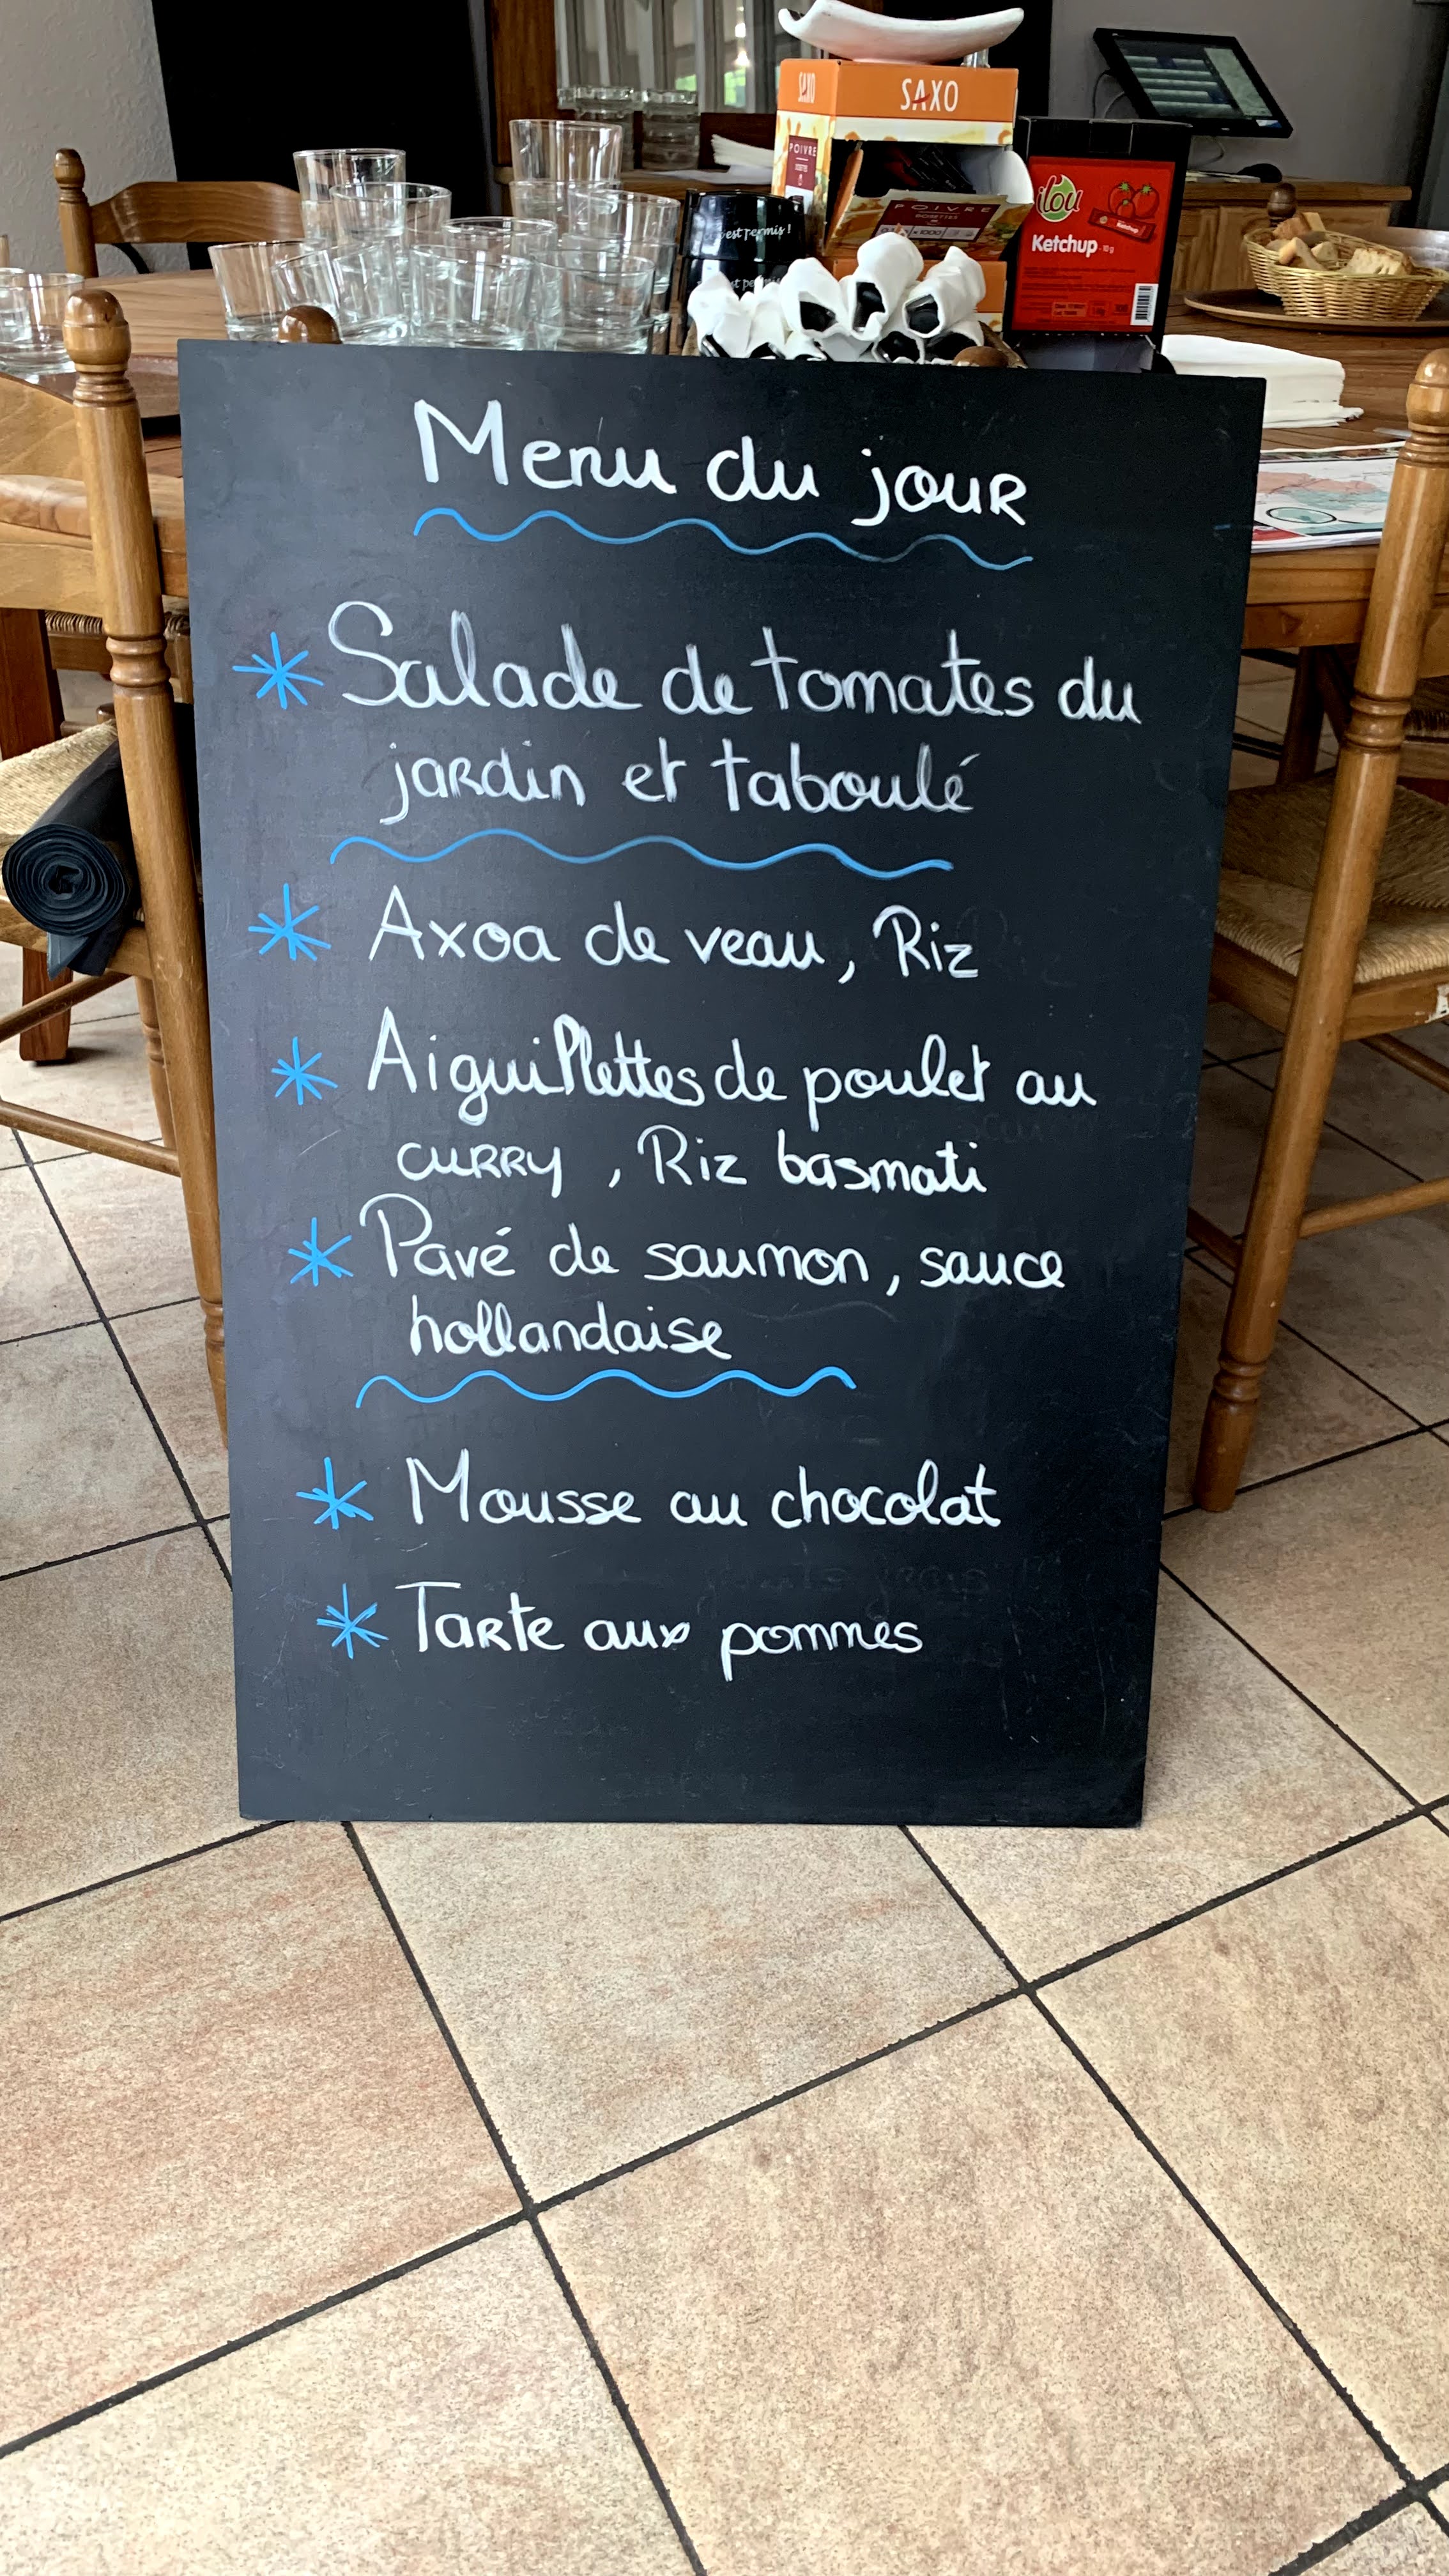 SAXO
SAXO
POIVRE
POIVRE
est permis !
ilou
Ketchup 10 g
Menu du jour
* Salade de tomates du
jardin et taboulé
* Axoa de veau, Riz
* Aiguillettes de poulet au
curry, Riz basmati
* Pavé de saumon, sauce
hollandaise
* Mousse au chocolat
* Tarte aux pommes